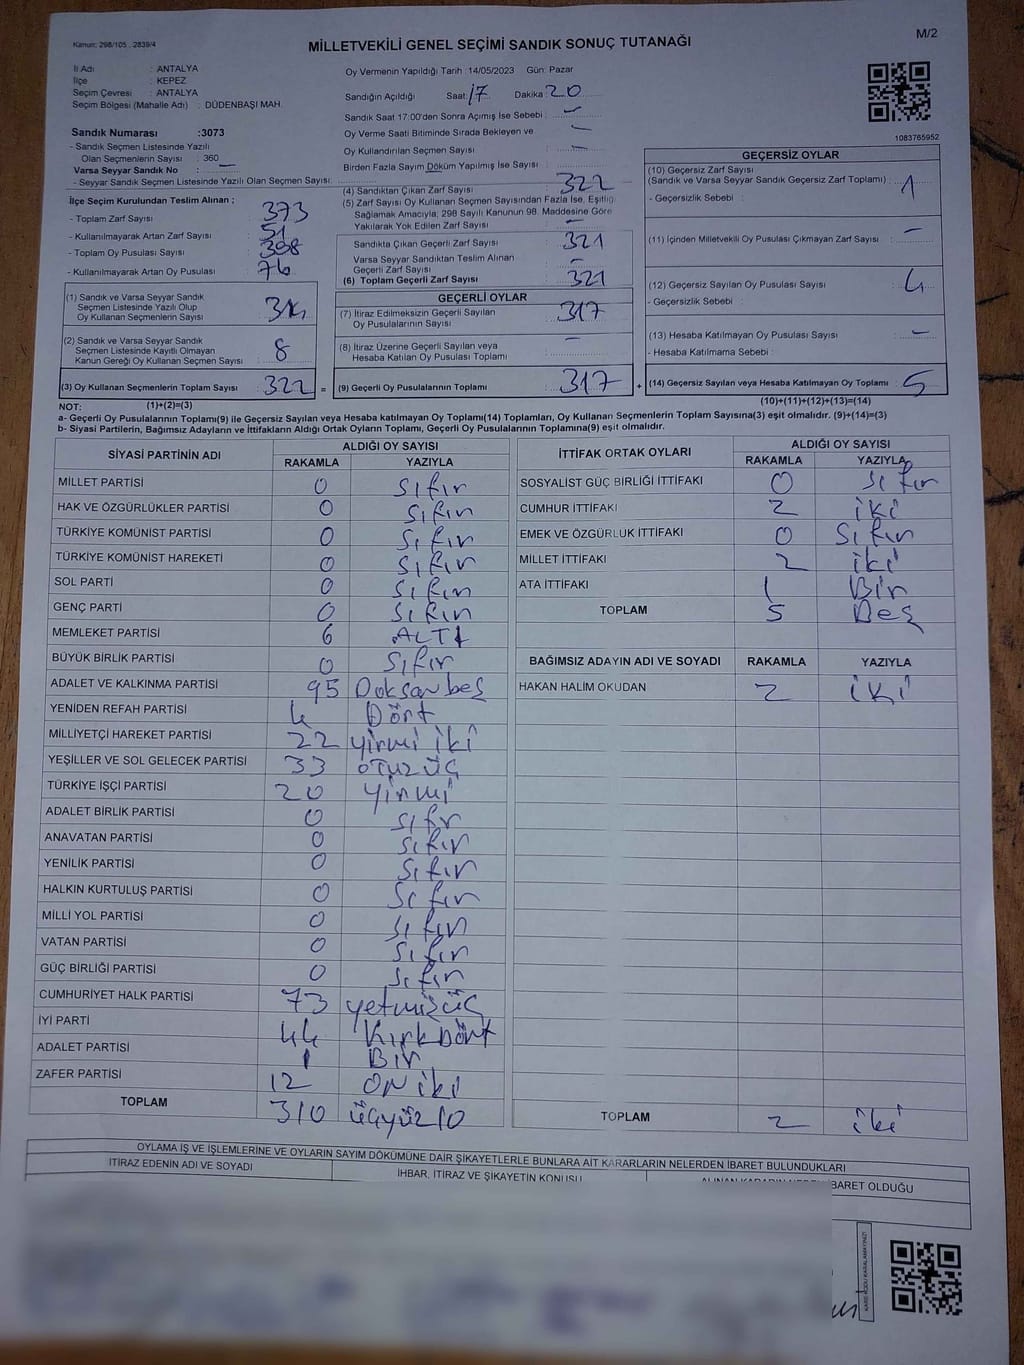 Kanun: 298/105 , 2839/4
M/2
MİLLETVEKİLİ GENEL SEÇİMİ SANDIK SONUÇ TUTANAĞI
İl Adı : ANTALYA
İlçe : KEPEZ
Seçim Çevresi : ANTALYA
Seçim Bölgesi (Mahalle Adı) : DÜDENBAŞI MAH.
Sandık Numarası :3073
- Sandık Seçmen Listesinde Yazılı
Olan Seçmenlerin Sayısı : 360
Varsa Seyyar Sandık No : —
- Seyyar Sandık Seçmen Listesinde Yazılı Olan Seçmen Sayısı:
Oy Vermenin Yapıldığı Tarih : 14/05/2023 Gün: Pazar
Sandığın Açıldığı Saat: 17 Dakika: 20
Sandık Saat 17:00'den Sonra Açımış İse Sebebi : —
Oy Verme Saati Bitiminde Sırada Bekleyen ve
Oy Kullandırılan Seçmen Sayısı : —
Birden Fazla Sayım Döküm Yapılmış İse Sayısı :
1083765952
İlçe Seçim Kurulundan Teslim Alınan ;
- Toplam Zarf Sayısı : 373
- Kullanılmayarak Artan Zarf Sayısı : 51
- Toplam Oy Pusulası Sayısı : 398
- Kullanılmayarak Artan Oy Pusulası : 76
(1) Sandık ve Varsa Seyyar Sandık
Seçmen Listesinde Yazılı Olup
Oy Kullanan Seçmenlerin Sayısı : 314
(2) Sandık ve Varsa Seyyar Sandık
Seçmen Listesinde Kayıtlı Olmayan
Kanun Gereği Oy Kullanan Seçmen Sayısı : 8
(3) Oy Kullanan Seçmenlerin Toplam Sayısı : 322 =
(1)+(2)=(3)
(4) Sandıktan Çıkan Zarf Sayısı : 322
(5) Zarf Sayısı Oy Kullanan Seçmen Sayısından Fazla İse, Eşitliği
Sağlamak Amacıyla, 298 Sayılı Kanunun 98. Maddesine Göre
Yakılarak Yok Edilen Zarf Sayısı : —
Sandıkta Çıkan Geçerli Zarf Sayısı : 321
Varsa Seyyar Sandıktan Teslim Alınan
Geçerli Zarf Sayısı : —
(6) Toplam Geçerli Zarf Sayısı : 321
GEÇERLİ OYLAR
(7) İtiraz Edilmeksizin Geçerli Sayılan
Oy Pusulalarının Sayısı : 317
(8) İtiraz Üzerine Geçerli Sayılan veya
Hesaba Katılan Oy Pusulası Toplamı : —
(9) Geçerli Oy Pusulalarının Toplamı : 317 +
GEÇERSİZ OYLAR
(10) Geçersiz Zarf Sayısı
(Sandık ve Varsa Seyyar Sandık Geçersiz Zarf Toplamı) : 1
- Geçersizlik Sebebi :
(11) İçinden Milletvekili Oy Pusulası Çıkmayan Zarf Sayısı : —
(12) Geçersiz Sayılan Oy Pusulası Sayısı : 4
- Geçersizlik Sebebi :
(13) Hesaba Katılmayan Oy Pusulası Sayısı : —
- Hesaba Katılmama Sebebi :
(14) Geçersiz Sayılan veya Hesaba Katılmayan Oy Toplamı : 5
(10)+(11)+(12)+(13)=(14)
NOT:
a- Geçerli Oy Pusulalarının Toplamı(9) ile Geçersiz Sayılan veya Hesaba katılmayan Oy Toplamı(14) Toplamları, Oy Kullanan Seçmenlerin Toplam Sayısına(3) eşit olmalıdır. (9)+(14)=(3)
b- Siyasi Partilerin, Bağımsız Adayların ve İttifakların Aldığı Ortak Oyların Toplamı, Geçerli Oy Pusulalarının Toplamına(9) eşit olmalıdır.
SİYASİ PARTİNİN ADI ALDIĞI OY SAYISI
RAKAMLA YAZIYLA
MİLLET PARTİSİ 0 Sıfır
HAK VE ÖZGÜRLÜKLER PARTİSİ 0 Sıfır
TÜRKİYE KOMÜNİST PARTİSİ 0 Sıfır
TÜRKİYE KOMÜNİST HAREKETİ 0 Sıfır
SOL PARTİ 0 Sıfır
GENÇ PARTİ 0 Sıfır
MEMLEKET PARTİSİ 6 ALTI
BÜYÜK BİRLİK PARTİSİ 0 Sıfır
ADALET VE KALKINMA PARTİSİ 95 Doksan beş
YENİDEN REFAH PARTİSİ 4 Dört
MİLLİYETÇİ HAREKET PARTİSİ 22 yirmi iki
YEŞİLLER VE SOL GELECEK PARTİSİ 33 OTUZ ÜÇ
TÜRKİYE İŞÇİ PARTİSİ 20 yirmi
ADALET BİRLİK PARTİSİ 0 sıfır
ANAVATAN PARTİSİ 0 Sıfır
YENİLİK PARTİSİ 0 Sıfır
HALKIN KURTULUŞ PARTİSİ 0 Sıfır
MİLLİ YOL PARTİSİ 0 Sıfır
VATAN PARTİSİ 0 Sıfır
GÜÇ BİRLİĞİ PARTİSİ 0 Sıfır
CUMHURİYET HALK PARTİSİ 73 yetmişüç
İYİ PARTİ 44 Kırk Dört
ADALET PARTİSİ 1 Bir
ZAFER PARTİSİ 12 ON iki
TOPLAM 310 üçyüz 10
İTTİFAK ORTAK OYLARI ALDIĞI OY SAYISI
RAKAMLA YAZIYLA
SOSYALİST GÜÇ BİRLİĞİ İTTİFAKI 0 Sıfır
CUMHUR İTTİFAKI 2 iki
EMEK VE ÖZGÜRLUK İTTİFAKI 0 Sıfır
MİLLET İTTİFAKI 2 iki
ATA İTTİFAKI 1 Bir
TOPLAM 5 Beş
BAĞIMSIZ ADAYIN ADI VE SOYADI RAKAMLA YAZIYLA
HAKAN HALİM OKUDAN 2 iki
TOPLAM 2 iki
OYLAMA İŞ VE İŞLEMLERİNE VE OYLARIN SAYIM DÖKÜMÜNE DAİR ŞİKAYETLERLE BUNLARA AİT KARARLARIN NELERDEN İBARET BULUNDUKLARI
İTİRAZ EDENİN ADI VE SOYADI
İHBAR, İTİRAZ VE ŞİKAYETİN KONUSU
BARET OLDUĞU
KARE KODU KARALAMAYINIZ!